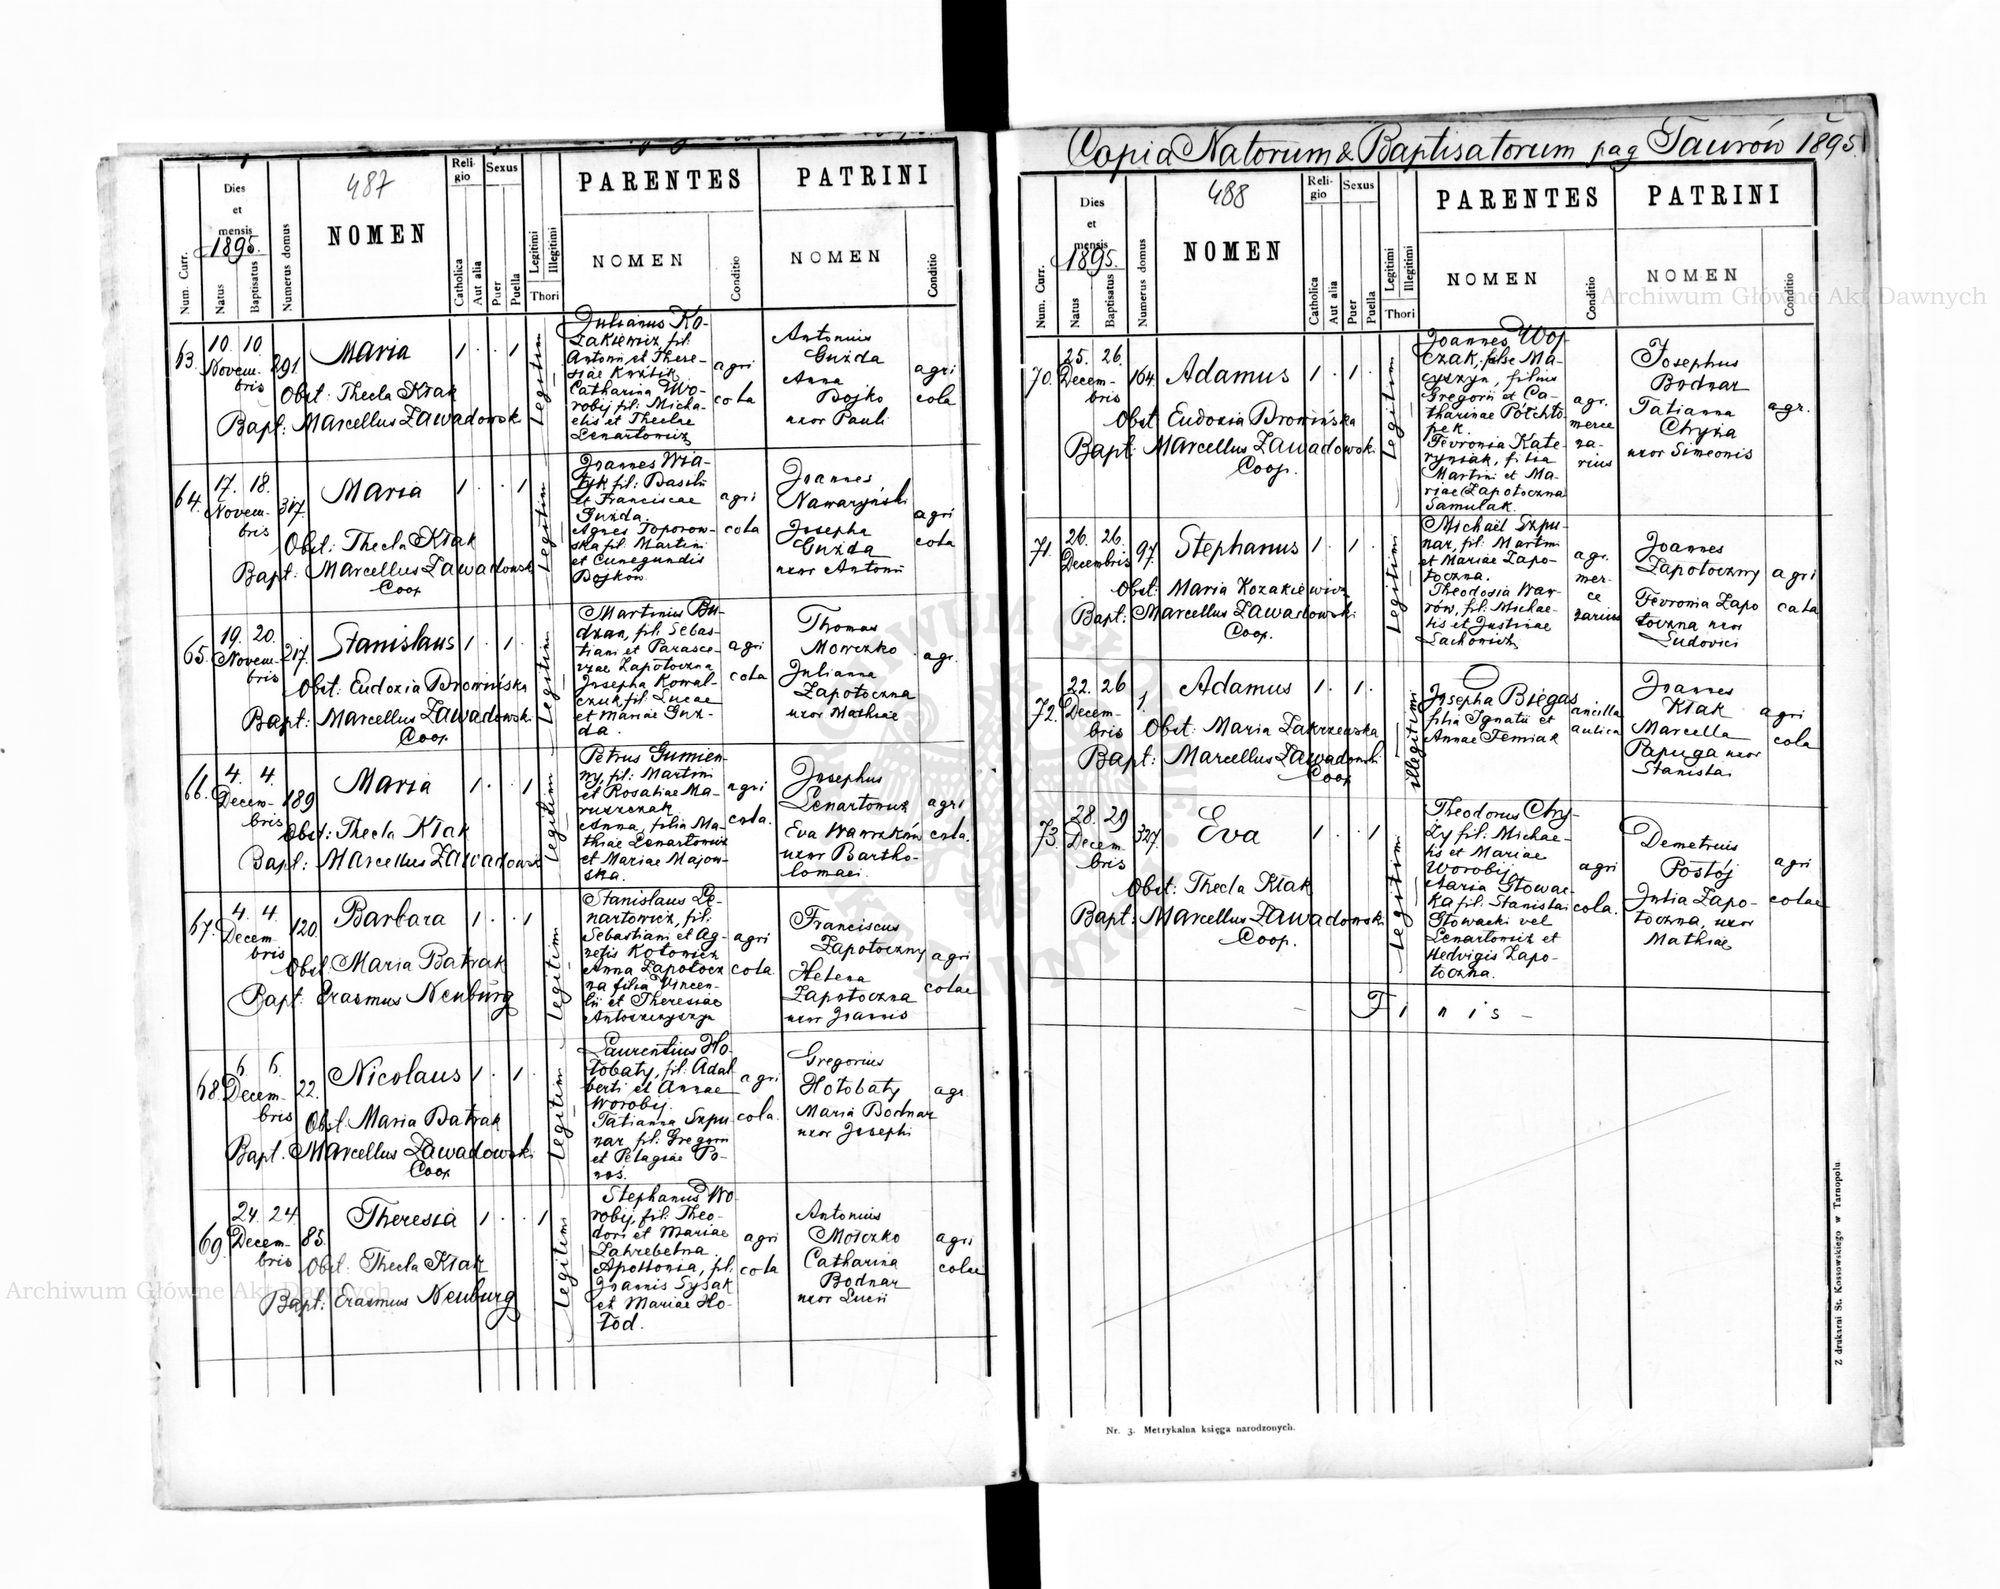 487
Dies et mensis 1895.
Num. Curr.
Natus
Baptisatus
Numerus domus
NOMEN
Religio
Catholica
Aut alia
Sexus
Puer
Puella
Legitimi
Illegitimi
Thori
PARENTES
NOMEN
Conditio
PATRINI
NOMEN
Conditio
63. 10. 10 Novembris 291. Maria 1 . . 1 Legitimi
Obst: Thecla Kłak
Bapt: Marcellus Zawadowski
Julianus Ko-
zakiewicz fil.
Antonii et There-
siae
Catharina Wo-
robij fil: Micha-
elis et Theclae
Lenartowicz
agri
cola
Antonius
Guzda
Anna
Bojko
uxor Pauli
agri
cola
64. 17. 18. Novembris 317. Maria 1 . . 1 Legitimi
Obst: Thecla Kłak
Bapt: Marcellus Zawadowski
Coop
Joannes Wia-
fil: Basilii
et Franciscae
Guzda.
Agnes Toporow-
ska fil. Martini
et Cunegundis
Bojków
agri
cola
Joannes
Nawaryński
Josepha
Guzda
uxor Antonii
agri
cola
65. 19. 20. Novembris 217. Stanislaus 1 . 1 . Legitimi
Obst: Eudoxia Browińska
Bapt: Marcellus Zawadowski
Coop.
Martinus Bu-
dzan, fil. Sebas-
tiani et Parasce-
vae Zapotoczna
Josepha Kowal-
czuk fil. Lucae
et Mariae Guz-
da.
agri
cola
Thomas
Morozko
Julianna
Zapotoczna
uxor Mathiae
agr.
66. 4. 4. Decembris 189 Maria 1 . . 1 Legitimi
Obst: Thecla Kłak
Bapt: Marcellus Zawadowski
Petrus Gumien-
ny, fil: Martini
et Rosaliae Ma-
ruszczak
Anna, filia Ma-
thiae Lenartowicz
et Mariae Majow-
ska.
agri
cola.
Josephus
Lenartowicz
Eva
uxor Bartho-
lomaei.
agri
cola.
67. 4. 4. Decembris 120. Barbara 1 . . 1 Legitimi
Obst. Maria Batrak
Bapt: Erasmus Neuburg
Stanislaus Le-
nartowicz, fil:
Sebastiani et Ag-
netis Kotowicz
Anna Zapotocz
na filia Vincen-
tii et Theresiae
Antoszczyszyn
agri
cola
Franciscus
Zapotoczny
Helena
Zapotoczna
uxor Joannis
agri
colae
68. 6. 6. Decembris 22. Nicolaus 1 . 1 . Legitimi
Obst. Maria Batrak
Bapt. Marcellus Zawadowski
Coop
Laurentius Ho-
łobaty, fil. Adal
berti et Annae
Worobij.
Tatianna Szpu-
nar, fil: Gregorii
et Pelagiae Po-
noś.
agri
cola.
Gregorius
Hołobaty
Maria Bodnar
uxor Josephi
agr.
69. 24. 24. Decembris 85. Theresia 1 . . 1 Legitimi
Obst: Thecla Kłak
Bapt: Erasmus Neuburg
Stephanus Wo-
robij, fil: Theo-
dori et Mariae
Zahrebelna.
Apollonia, fil:
Joannis Sysak
et Mariae Ho-
łod.
agri
cola
Antonius
Moroczko
Catharina
Bodnar
uxor Lucii
agri
colae
Copia Natorum & Baptisatorum pag Taurów 1895.
488
Dies et mensis 1895.
Num. Curr.
Natus
Baptisatus
Numerus domus
NOMEN
Religio
Catholica
Aut alia
Sexus
Puer
Puella
Legitimi
Illegitimi
Thori
PARENTES
NOMEN
Conditio
PATRINI
NOMEN
Conditio
70. 25. 26. Decembris 164. Adamus 1 . 1 . Legitimi
Obst. Eudoxia Browińska
Bapt: Marcellus Zawadowski
Coop.
Joannes Woj-
czak, false Ma-
cyszyn, filius
Gregorii et Ca-
tharinae Półchło-
pek.
Fevronia Kate-
ryniak, filia
Martini et Ma-
riae Zapotoczna
Samulak.
agr.
merce
na-
rius
Josephus
Bodnar
Tatianna
Chyża
uxor Simeonis
agr.
71. 26. 26. Decembris 97. Stephanus 1 . 1 . Legitimi
Obst: Maria Kozakiewicz
Bapt: Marcellus Zawadowski
Coop.
Michael Szpu-
nar, fil. Martini
et Mariae Zapo-
toczna.
Theodosia Waw-
rów, fil. Michae-
lis et Justinae
Lachowicz
agr.
mer-
ce
narius
Joannes
Zapotoczny
Fevronia Zapo
toczna uxor
Ludovici
agri
cola
72. 22. 26 Decembris 1. Adamus 1. 1. illegitimi
Obst. Maria Zakrzewska
Bapt: Marcellus Zawadowski
Coop
Josepha Biegas
filia Ignatii et
Annae Femiak
ancilla
aulica
Joannes
Kłak
Marcella
Papuga uxor
Stanislai
agri
cola
73. 28. 29 Decembris 327. Eva 1 . . 1 Legitimi
Obst: Thecla Kłak
Bapt: Marcellus Zawadowski
Coop.
Theodorus Chy-
ży fil: Michae-
lis et Mariae
Worobij
Maria Głowac-
ka fil. Stanislai
Głowacki vel
Lenartowicz et
Hedvigis Zapo-
toczna.
agri
cola.
Demetrius
Postój
Julia Zapo-
toczna, uxor
Mathiae
agri
colae
Finis
Nr. 3. Metrykalna księga narodzonych.
Z drukarni St. Kossowskiego w Tarnopolu.
Archiwum Główne Akt Dawnych
Archiwum Główne Akt Dawnych